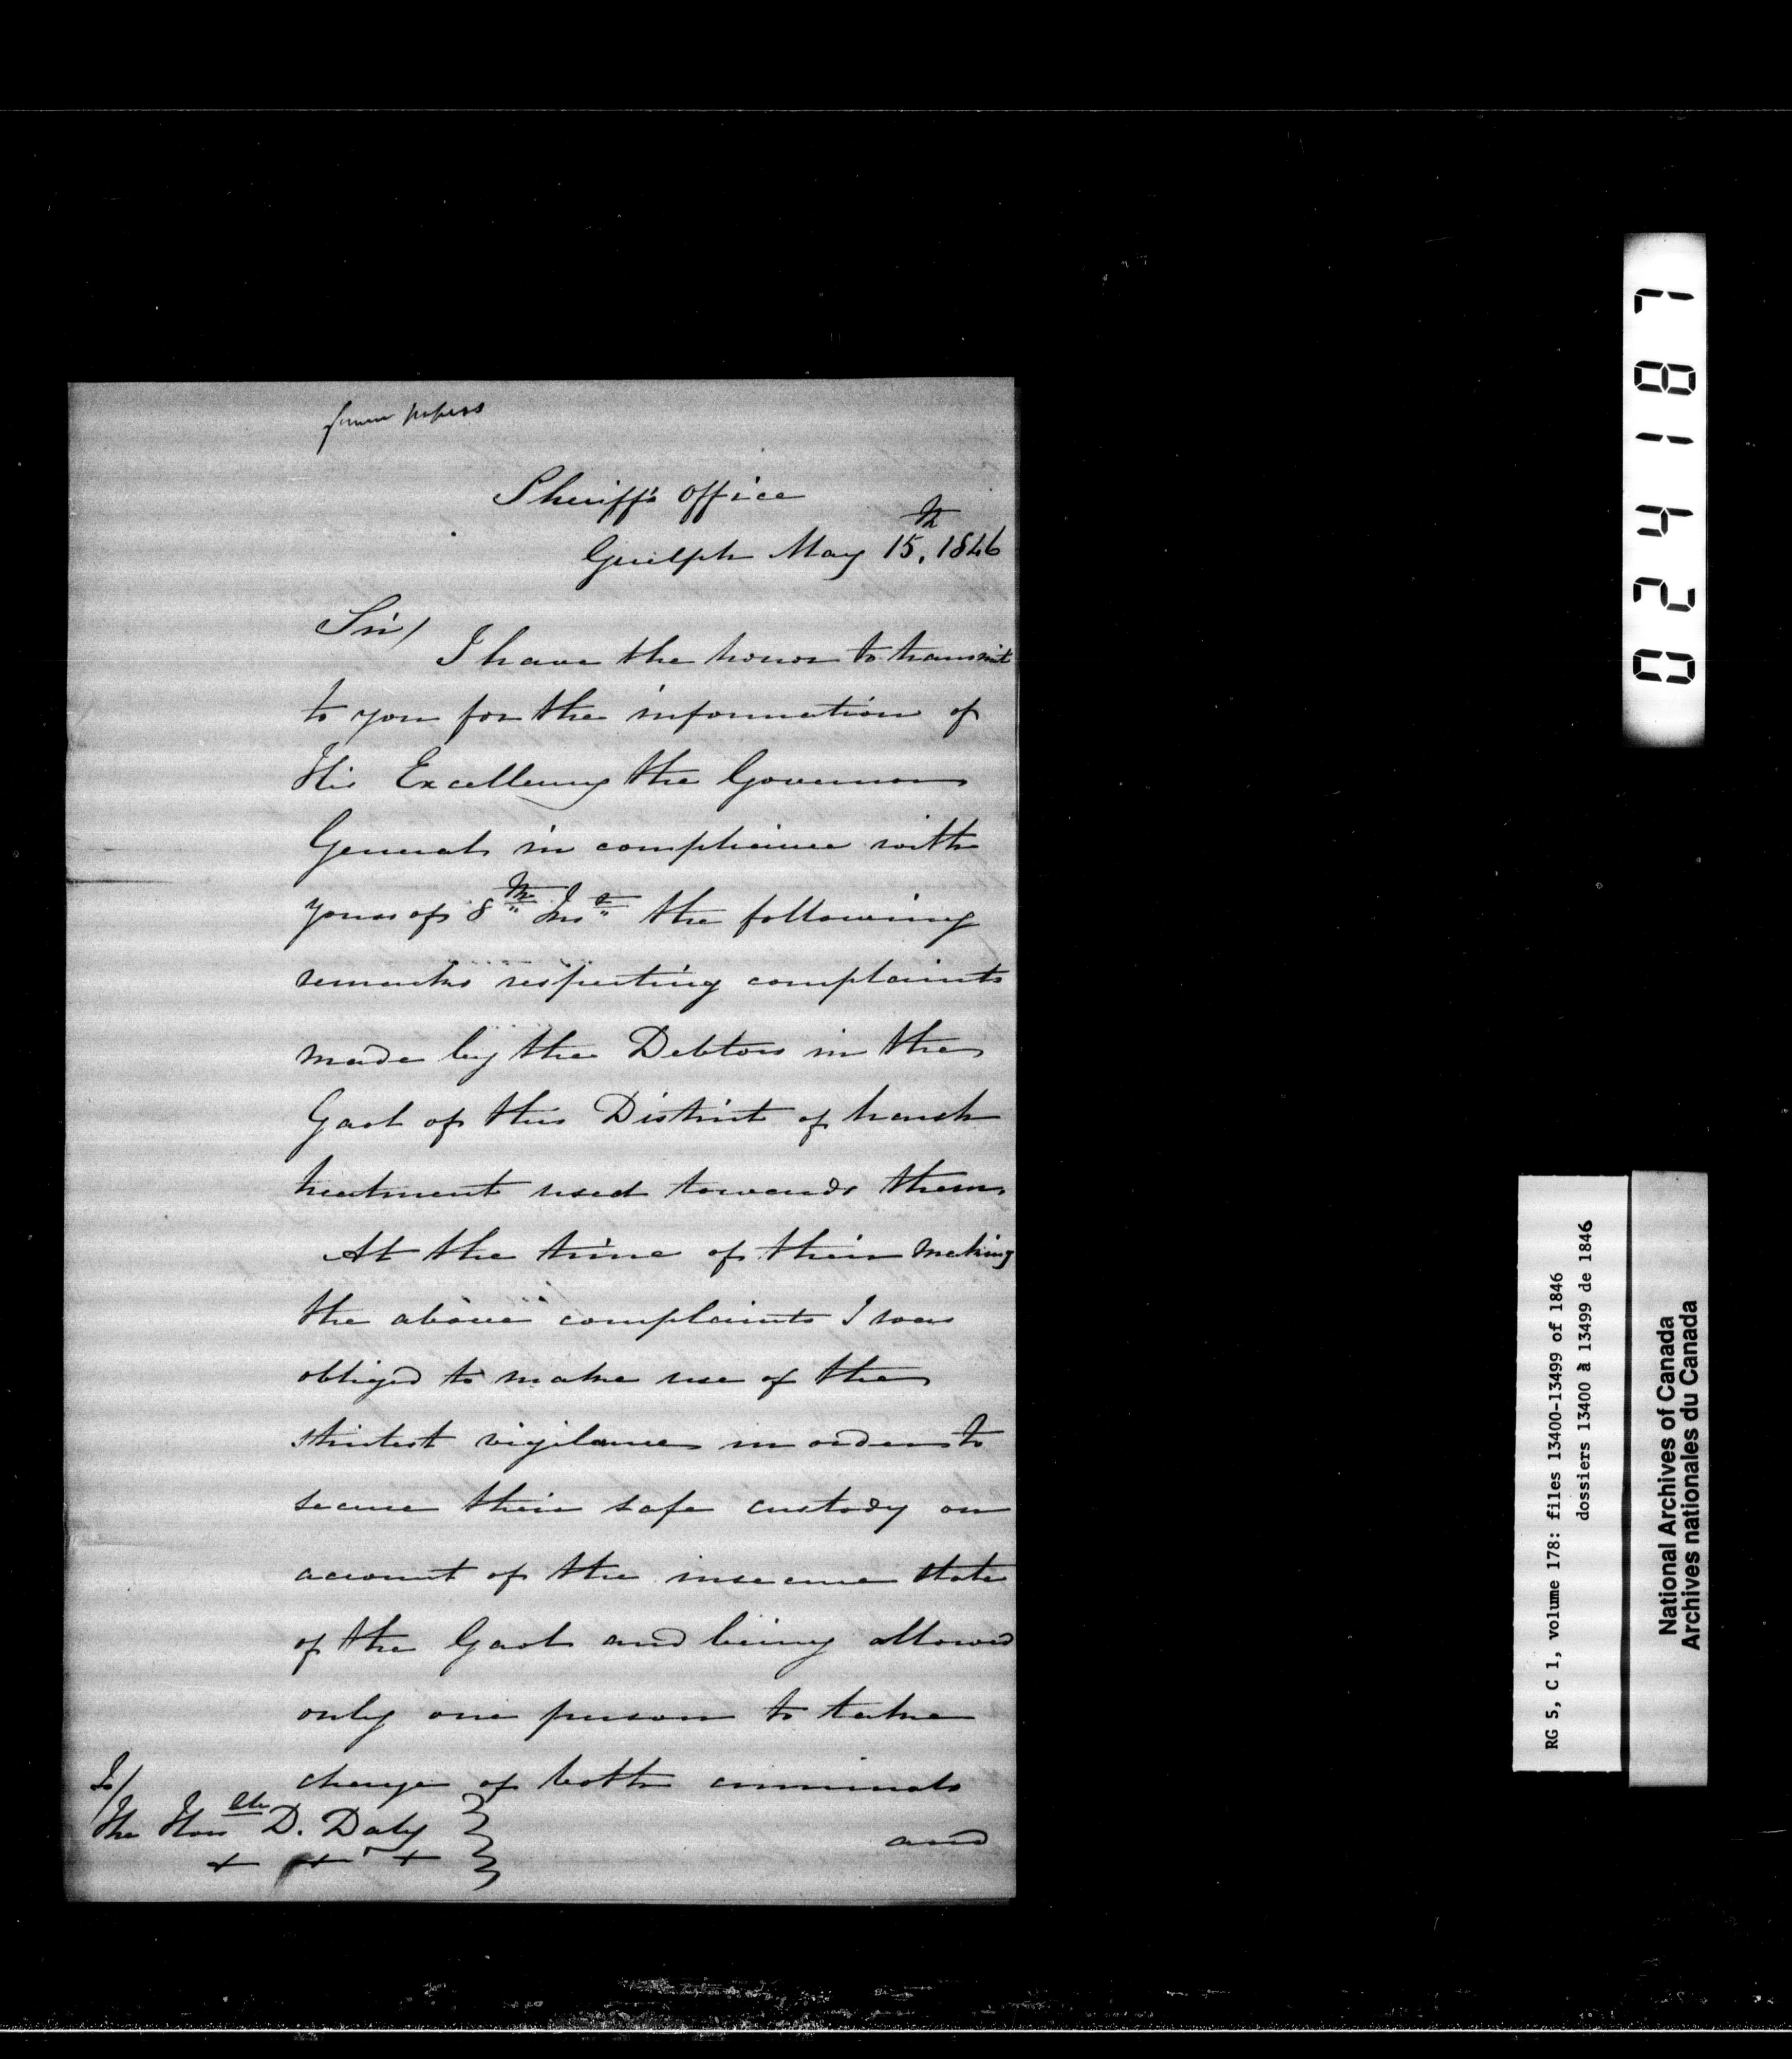 former papers
Sheriff's office
Guelph May 15th, 1846
Sir/
I have the honor to transmit
to you for the information of
His Excellency the Governor
General in compliance with
yours of 8th Inst the following
remarks respecting complaints
made by the Debtors in the
Gaol of this District of harsh
treatment used towards them
At the time of their making
the above complaints I was
obliged to make use of the
strictest vigilance in order to
secure their safe custody on
account of the insecure state
of the Gaol and being allowed
only one person to take
charge of both criminals
and
To/
The Honble D. Daly
+ + +
024187
RG 5, C 1, volume 178: files 13400-13499 of 1846
dossiers 13400 à 13499 de 1846
National Archives of Canada
Archives nationales du Canada